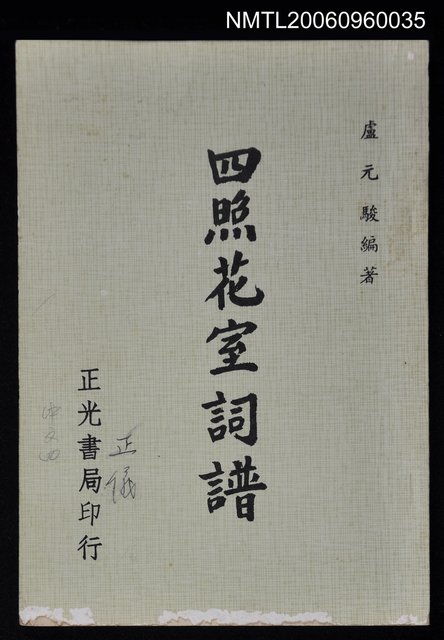 NMTL20060960035
盧元駿編著
四照花室詞譜
正光書局印行
正儀
中文四